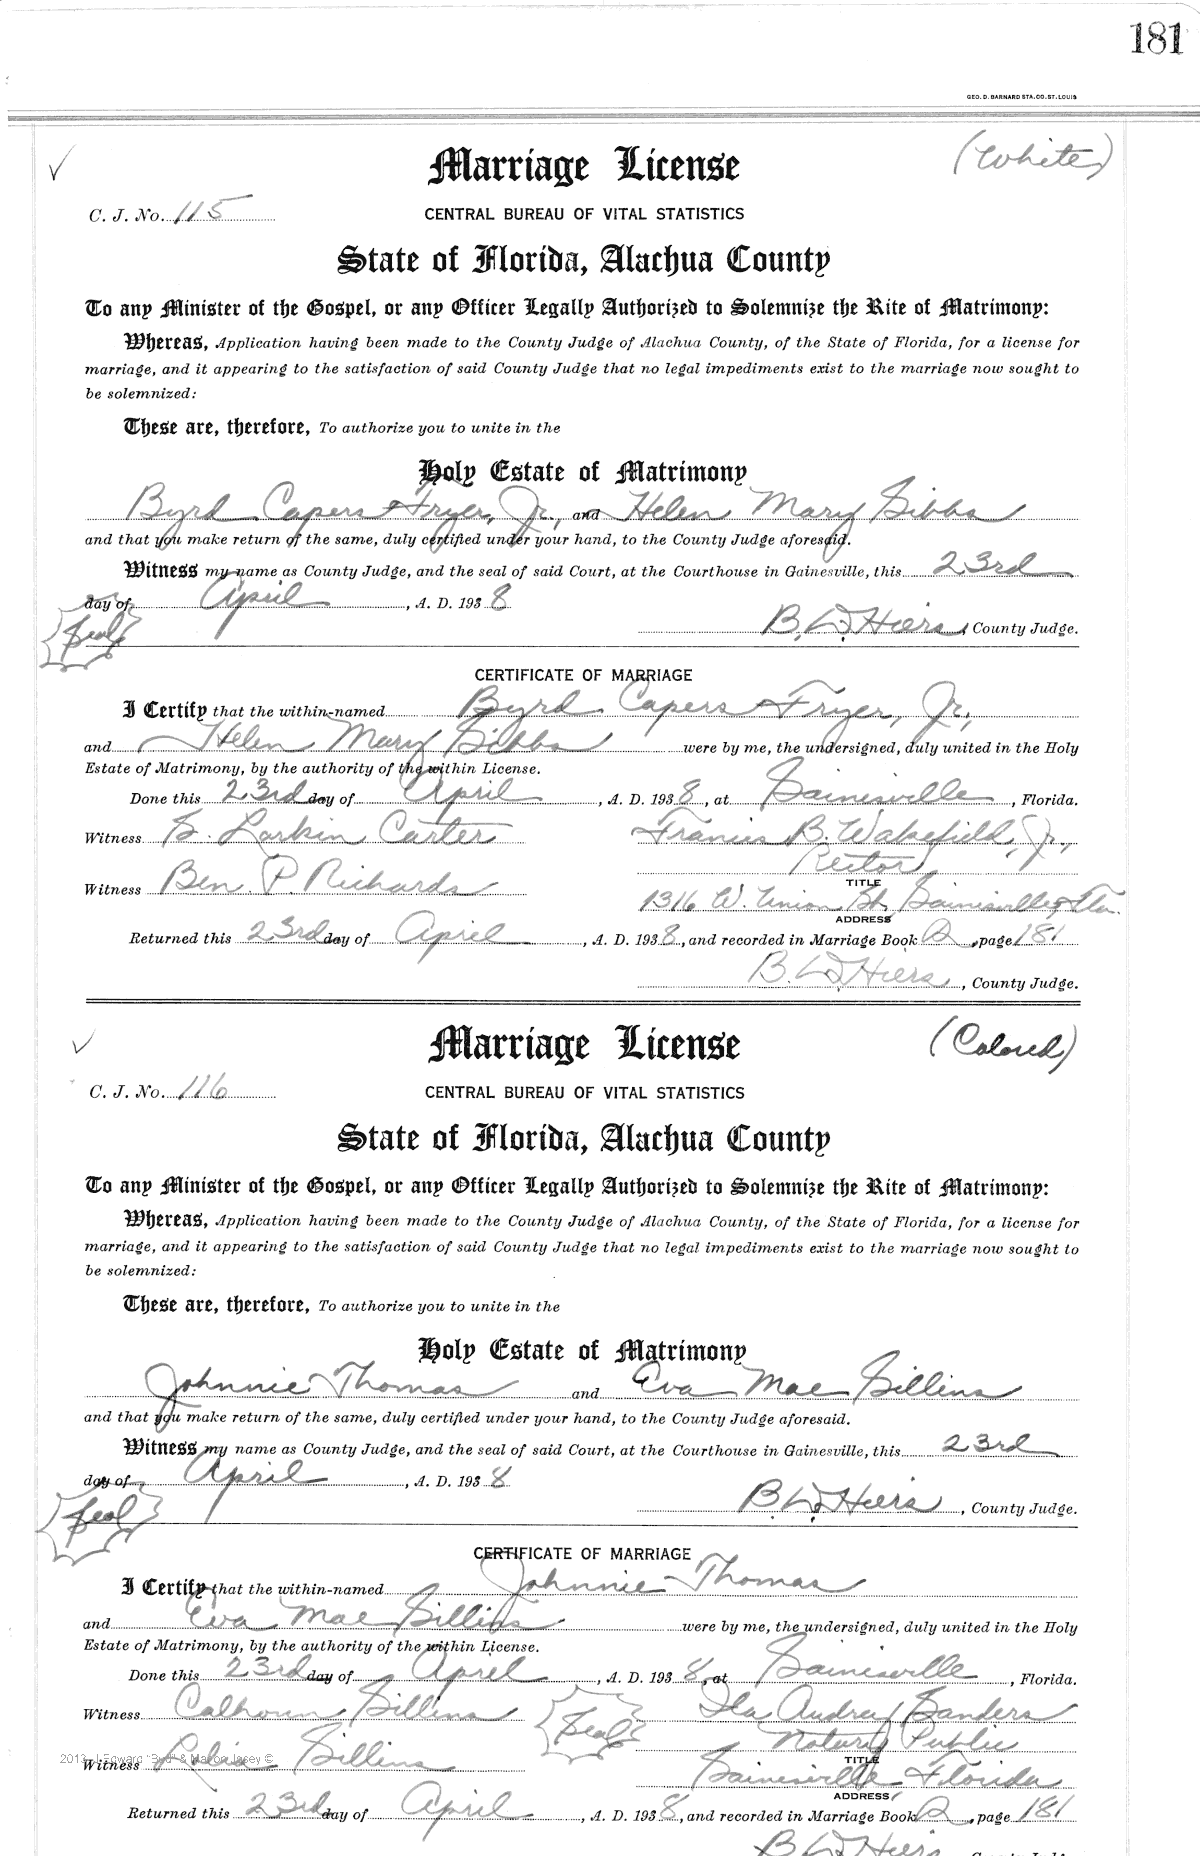 181
GEO. D. BARNARD STA. CO. ST. LOUIS
✓ Marriage License (White)
C. J. No. 115 CENTRAL BUREAU OF VITAL STATISTICS
State of Florida, Alachua County
To any Minister of the Gospel, or any Officer Legally Authorized to Solemnize the Rite of Matrimony:
Whereas, Application having been made to the County Judge of Alachua County, of the State of Florida, for a license for
marriage, and it appearing to the satisfaction of said County Judge that no legal impediments exist to the marriage now sought to
be solemnized:
These are, therefore, To authorize you to unite in the
Holy Estate of Matrimony
Byrd Capers Fryer, Jr., and Helen Mary Gibbs
and that you make return of the same, duly certified under your hand, to the County Judge aforesaid.
Witness my name as County Judge, and the seal of said Court, at the Courthouse in Gainesville, this 23rd
day of April, A. D. 1938
Seal B. D. Hiers, County Judge.
CERTIFICATE OF MARRIAGE
I Certify that the within-named Byrd Capers Fryer, Jr.,
and Helen Mary Gibbs were by me, the undersigned, duly united in the Holy
Estate of Matrimony, by the authority of the within License.
Done this 23rd day of April, A. D. 1938, at Gainesville, Florida.
Witness G. Larkin Carter Francis B. Wakefield, Jr.,
Rector
Witness Ben P. Richards TITLE
1316 W. Union St. Gainesville, Fla.
ADDRESS
Returned this 23rd day of April, A. D. 1938, and recorded in Marriage Book 2, page 181
B. D. Hiers, County Judge.
✓ Marriage License (Colored)
C. J. No. 116 CENTRAL BUREAU OF VITAL STATISTICS
State of Florida, Alachua County
To any Minister of the Gospel, or any Officer Legally Authorized to Solemnize the Rite of Matrimony:
Whereas, Application having been made to the County Judge of Alachua County, of the State of Florida, for a license for
marriage, and it appearing to the satisfaction of said County Judge that no legal impediments exist to the marriage now sought to
be solemnized:
These are, therefore, To authorize you to unite in the
Holy Estate of Matrimony
Johnnie Thomas and Eva Mae Gillins
and that you make return of the same, duly certified under your hand, to the County Judge aforesaid.
Witness my name as County Judge, and the seal of said Court, at the Courthouse in Gainesville, this 23rd
day of April, A. D. 1938
Seal B. D. Hiers, County Judge.
CERTIFICATE OF MARRIAGE
I Certify that the within-named Johnnie Thomas
and Eva Mae Gillins were by me, the undersigned, duly united in the Holy
Estate of Matrimony, by the authority of the within License.
Done this 23rd day of April, A. D. 1938, at Gainesville, Florida.
Witness Calhoun Gillins Seal Ila Audrey Sanders
Notary Public
2013 J Edward "Byrd" & Marion Josey ©
Witness Lelia Gillins TITLE
Gainesville Florida
ADDRESS
Returned this 23rd day of April, A. D. 1938, and recorded in Marriage Book 2, page 181
B. D. Hiers